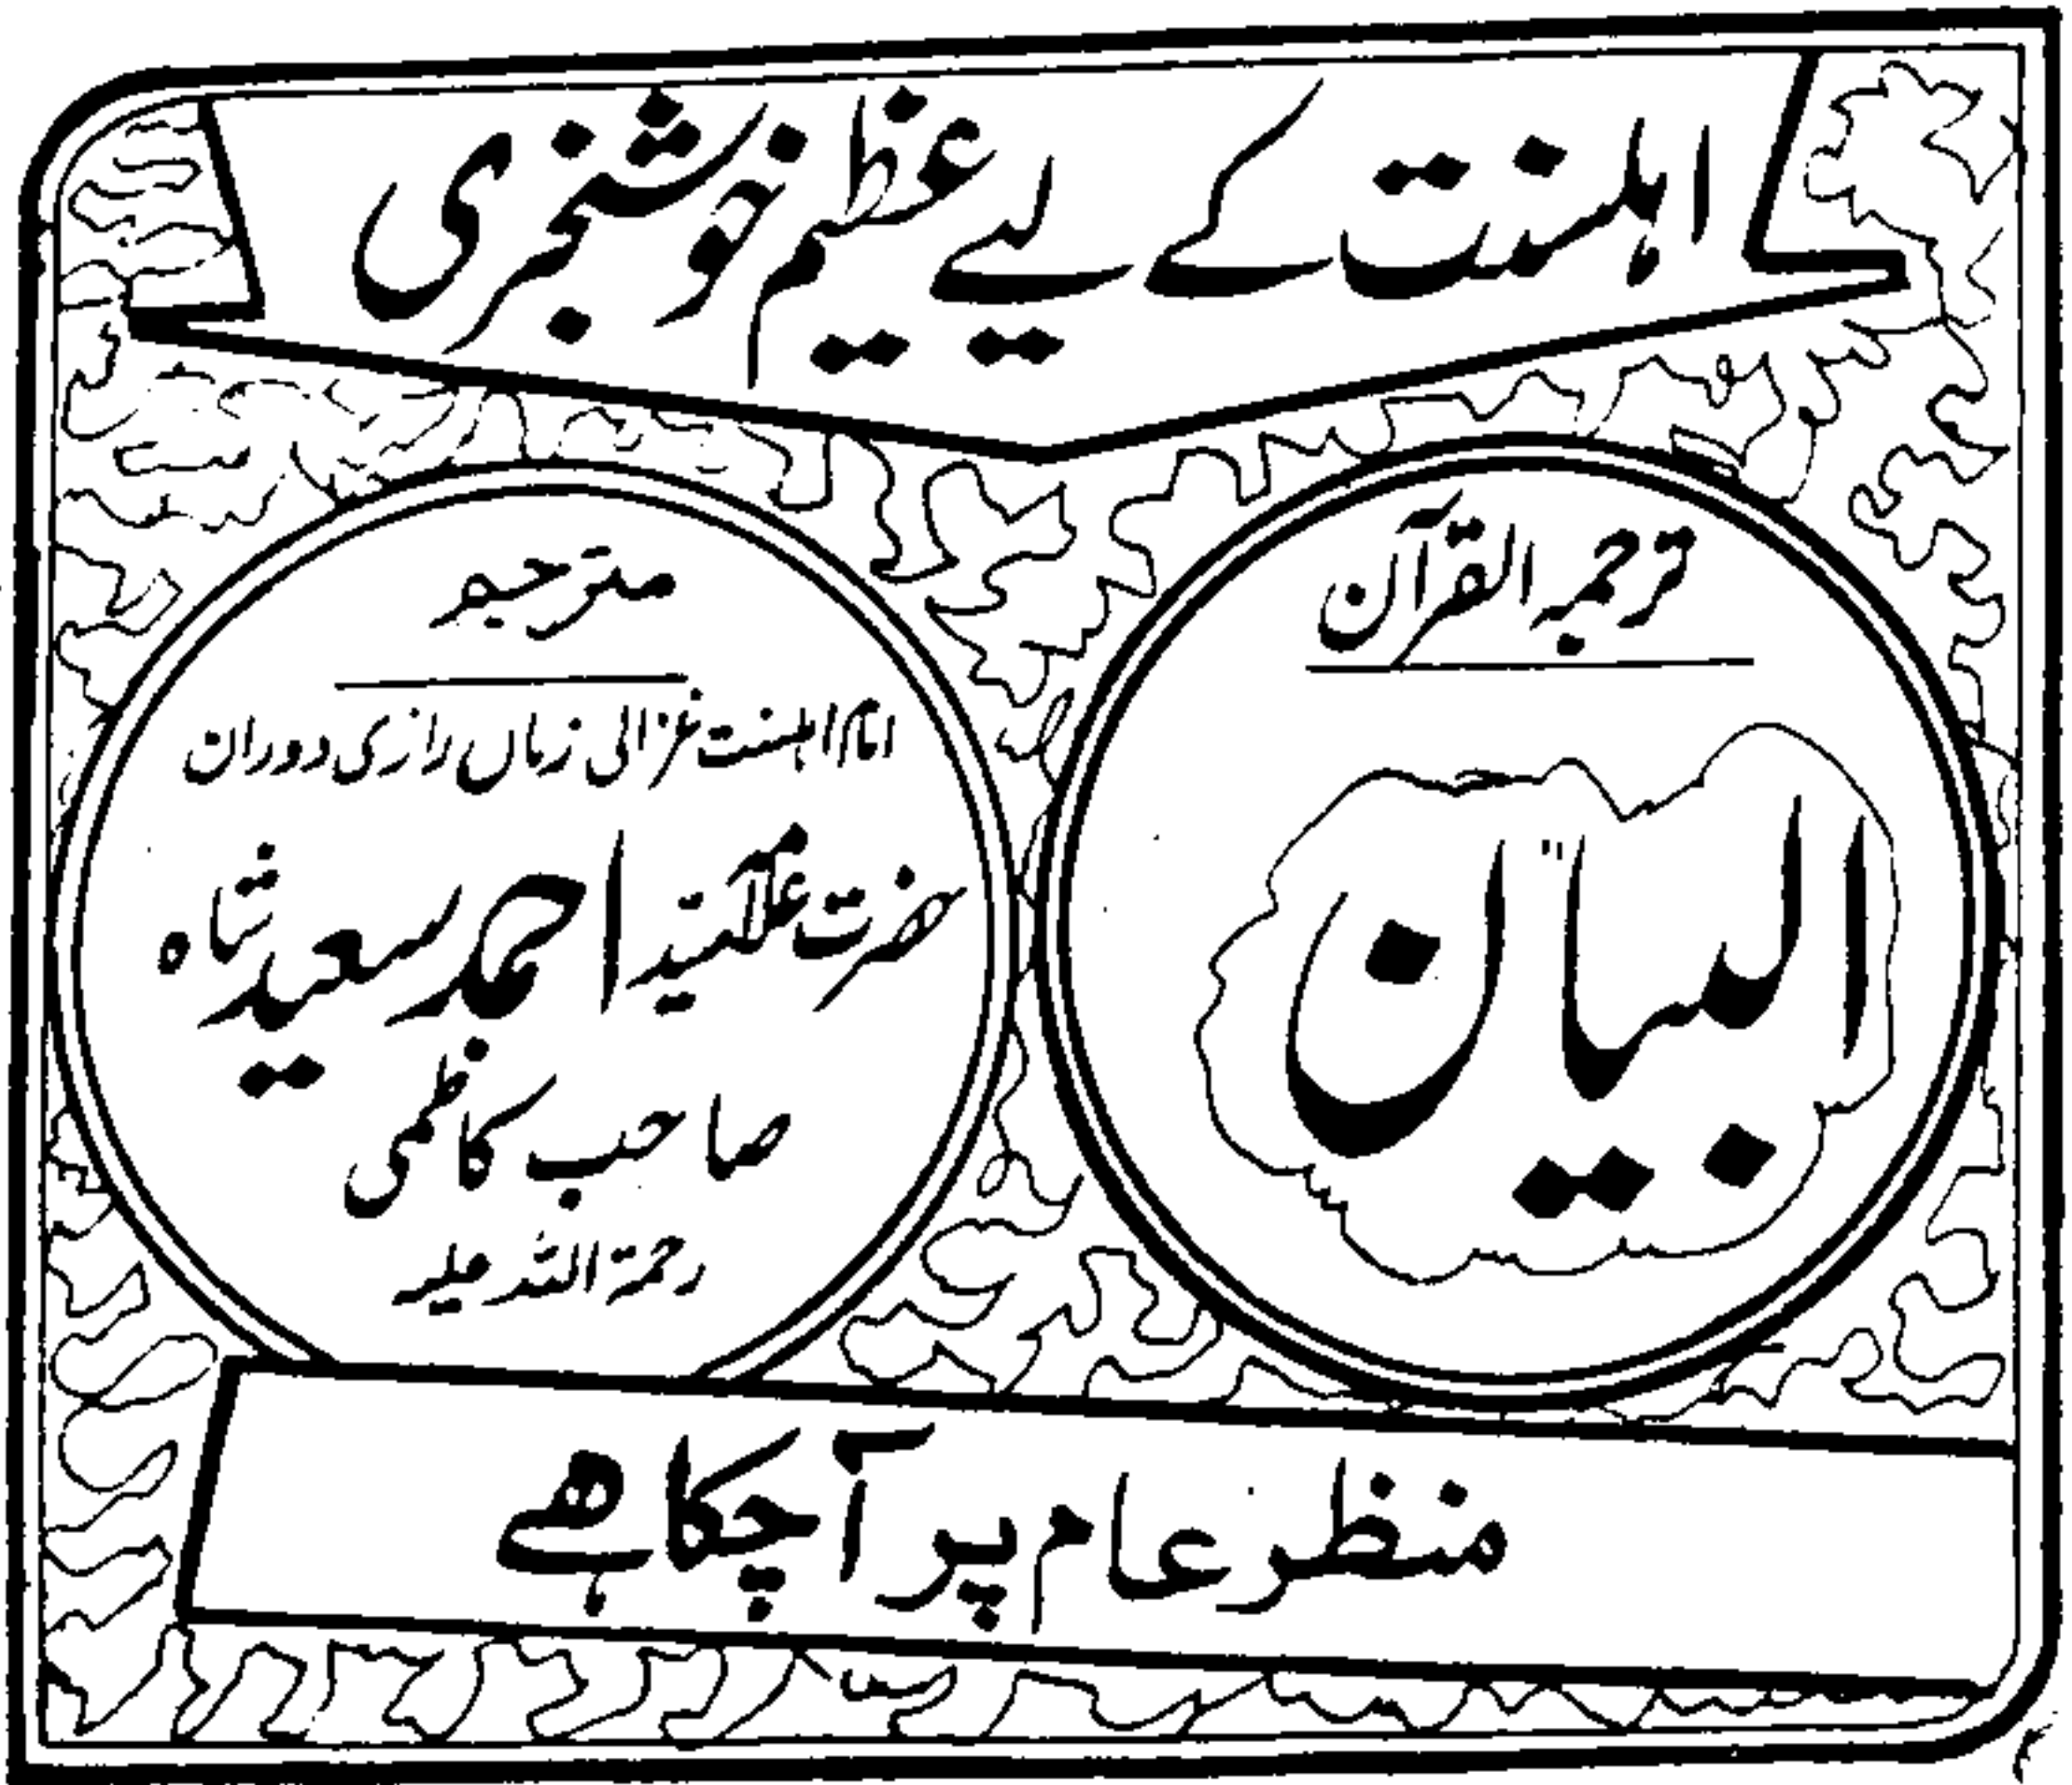 اہلسنت کے لیے عظیم خوشخبری
ترجمہ القرآن
البیان
مترجم
امام اہلسنت غزالی زماں رازی دوراں
حضرت علامہ سید احمد سعید شاہ
صاحب کاظمی
رحمۃ اللہ علیہ
منظر عام پر آچکا ہے